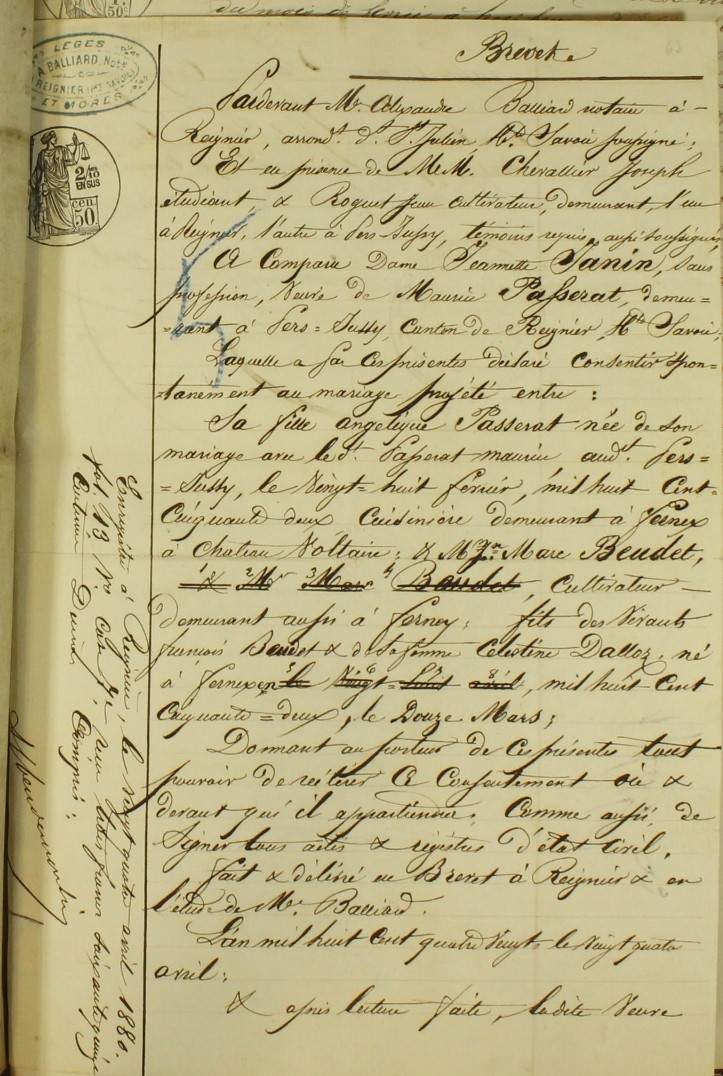 Brevet.
LEGES
BALLIARD, Not.
REIGNIER (Hte SAVOIE)
ET MORES
2/10
EN SUS
50 cen
Pardevant Mr Alexandre Balliard notaire à
Reignier, arrondt. de St Julien, Hte Savoie soussigné;
Et en présence de MM. Chevallier Joseph
étudiant, & Roguet Jean cultivateur, demeurant, l'un
à Reignier, l'autre à Pers-Jussy, témoins requis, aussi soussignés,
A Comparu Dame Jeannette Janin, sans
profession, Veuve de Maurice Passerat, demeu=
=rant à Pers=Jussy, canton de Reignier, Hte Savoie,
Laquelle a par ces présentes déclaré consentir spon=
=tanément au mariage projeté entre:
Sa fille angélique Passerat née de son
mariage avec le dt. Passerat maurice audit. Pers=
=Jussy, le Vingt=huit février, mil huit Cent
Cinquante deux, Cuisinière demeurant à Fernex
à Chateau Voltaire; & Mr Jn Marc Beudet,
1 & 2 Mr 3 Marc 4 Baudet, Cultivateur
demeurant aussi à Ferney; fils des vivants
françois Beudet & de sa femme Célestine Dalloz, né
à Fernex en 5 le 6 Vingt=7 huit 8 avril, mil huit Cent
Cinquante=deux, le Douze Mars;
Donnant au porteur de ces présentes tout
pouvoir de réitérer Ce Consentement où &
devant qui il appartiendra, Comme aussi de
Signer tous actes & registres d'état Civil.
fait & délivré en Brevet à Reignier & en
l'étude de Mr. Balliard.
L'an mil huit Cent quatre Vingt le Vingt quatre
avril;
& après lecture faite, la dite Veuve
Enregistré à Reignier, le vingt quatre avril 1880.
fol. 13 Vo Case 7e. reçu trois francs soixante quinze
Centimes Décimes Compris.